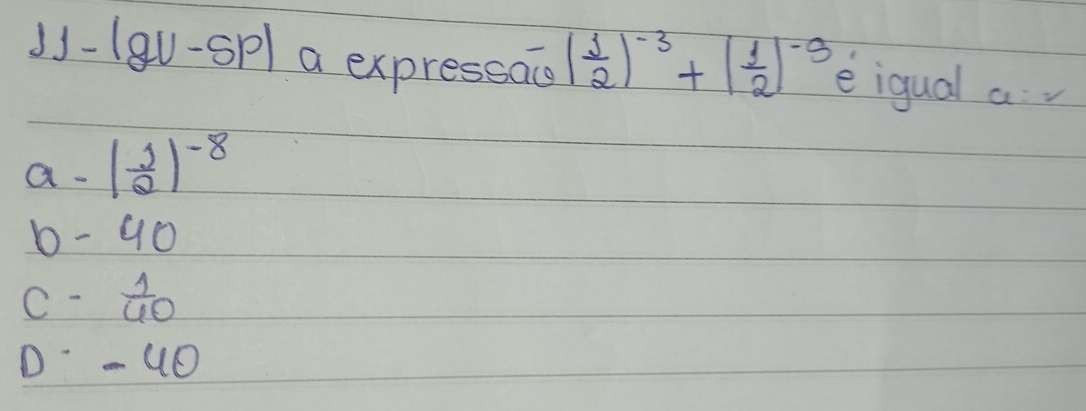 11-(gV-SP) a expressão (1/2)^-3 + (1/2)^-5 é igual a:
a - (1/2)^-8
b - 40
C - 1/40
D - - 40